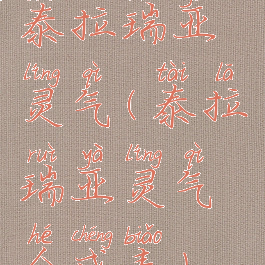 泰拉瑞亚
líng qì tài lā
灵气(泰拉
ruì yà líng qì
瑞亚灵气
hé chéng biǎo
合成表)